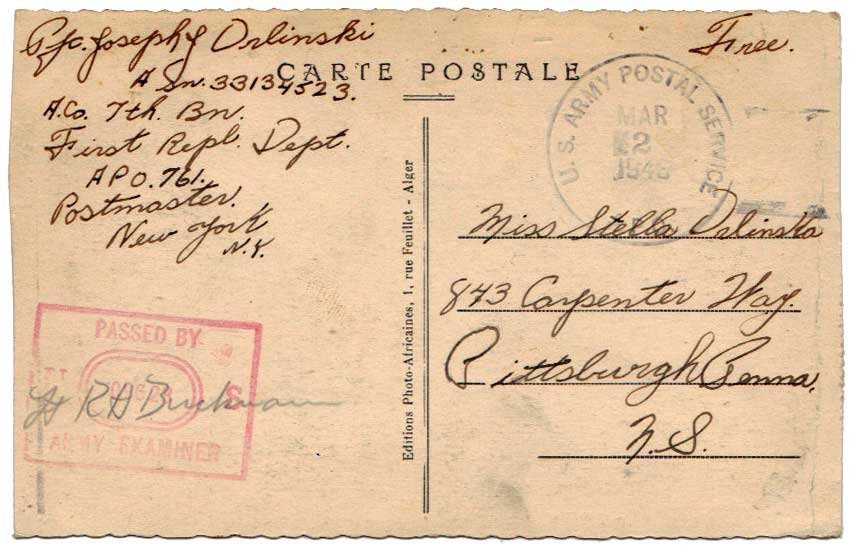 Pfc. Joseph J Orlinski
A Sn. 33134523.
A.Co. 7th. Bn.
First Repl. Dept.
APO. 761.
Postmaster.
New York
N.Y.
Free.
CARTE POSTALE
U. S. ARMY POSTAL SERVICE
MAR
2
Miss Stella Orlinska
843 Carpenter Way.
Pittsburgh Penna.
N.S.
Editions Photo-Africaines, 1, rue Feuillet - Alger
PASSED BY
S
ARMY EXAMINER
Lt RA Buckman